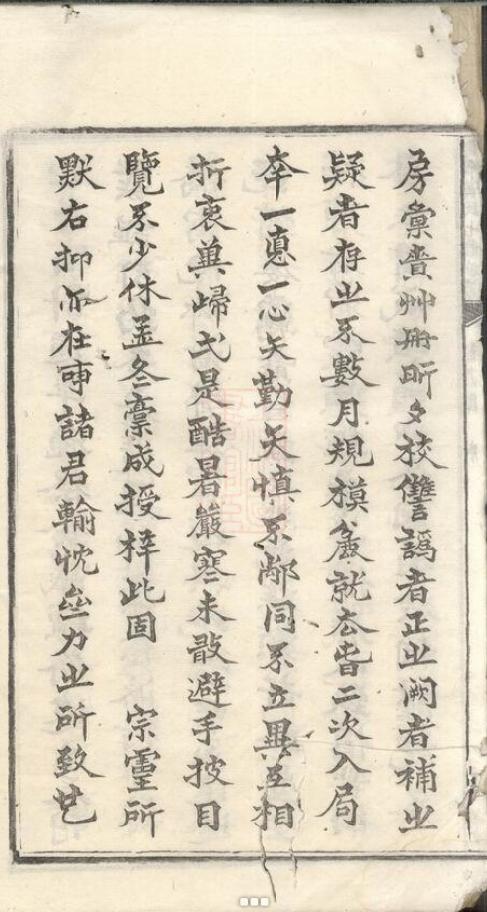 房彙賷艸冊昕夕校讎譌者正㞢闕者補㞢
疑者存㞢不數月規模麄就厺旹二次入局
夲一悳一心矢勤矢慎不同不立異互相
折衷冀歸弌是酷暑嚴寒未敢避手披目
覽不少休孟冬稾成授梓此固　宗靈所
默右抑亦在事諸君輸忱竝力㞢所致也